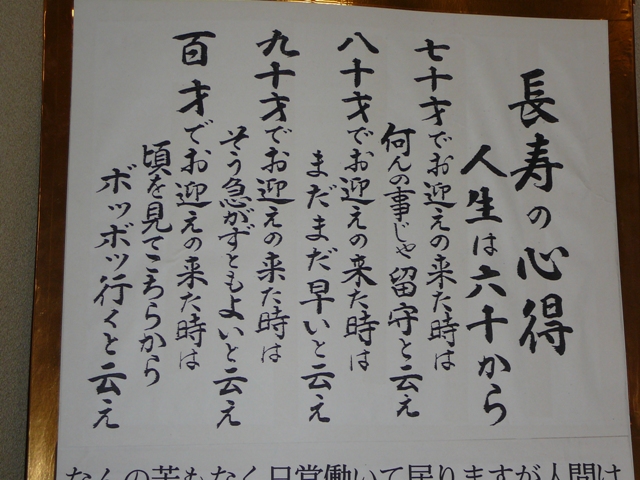 長寿の心得
人生は六十から
七十才でお迎えの来た時は
何んの事じゃ留守と云え
八十才でお迎えの来た時は
まだまだ早いと云え
九十才でお迎えの来た時は
そう急がずともよいと云え
百才でお迎えの来た時は
頃を見てこちらから
ボツボツ行くと云え
なんの苦もなく日常働いて居りますが人間は